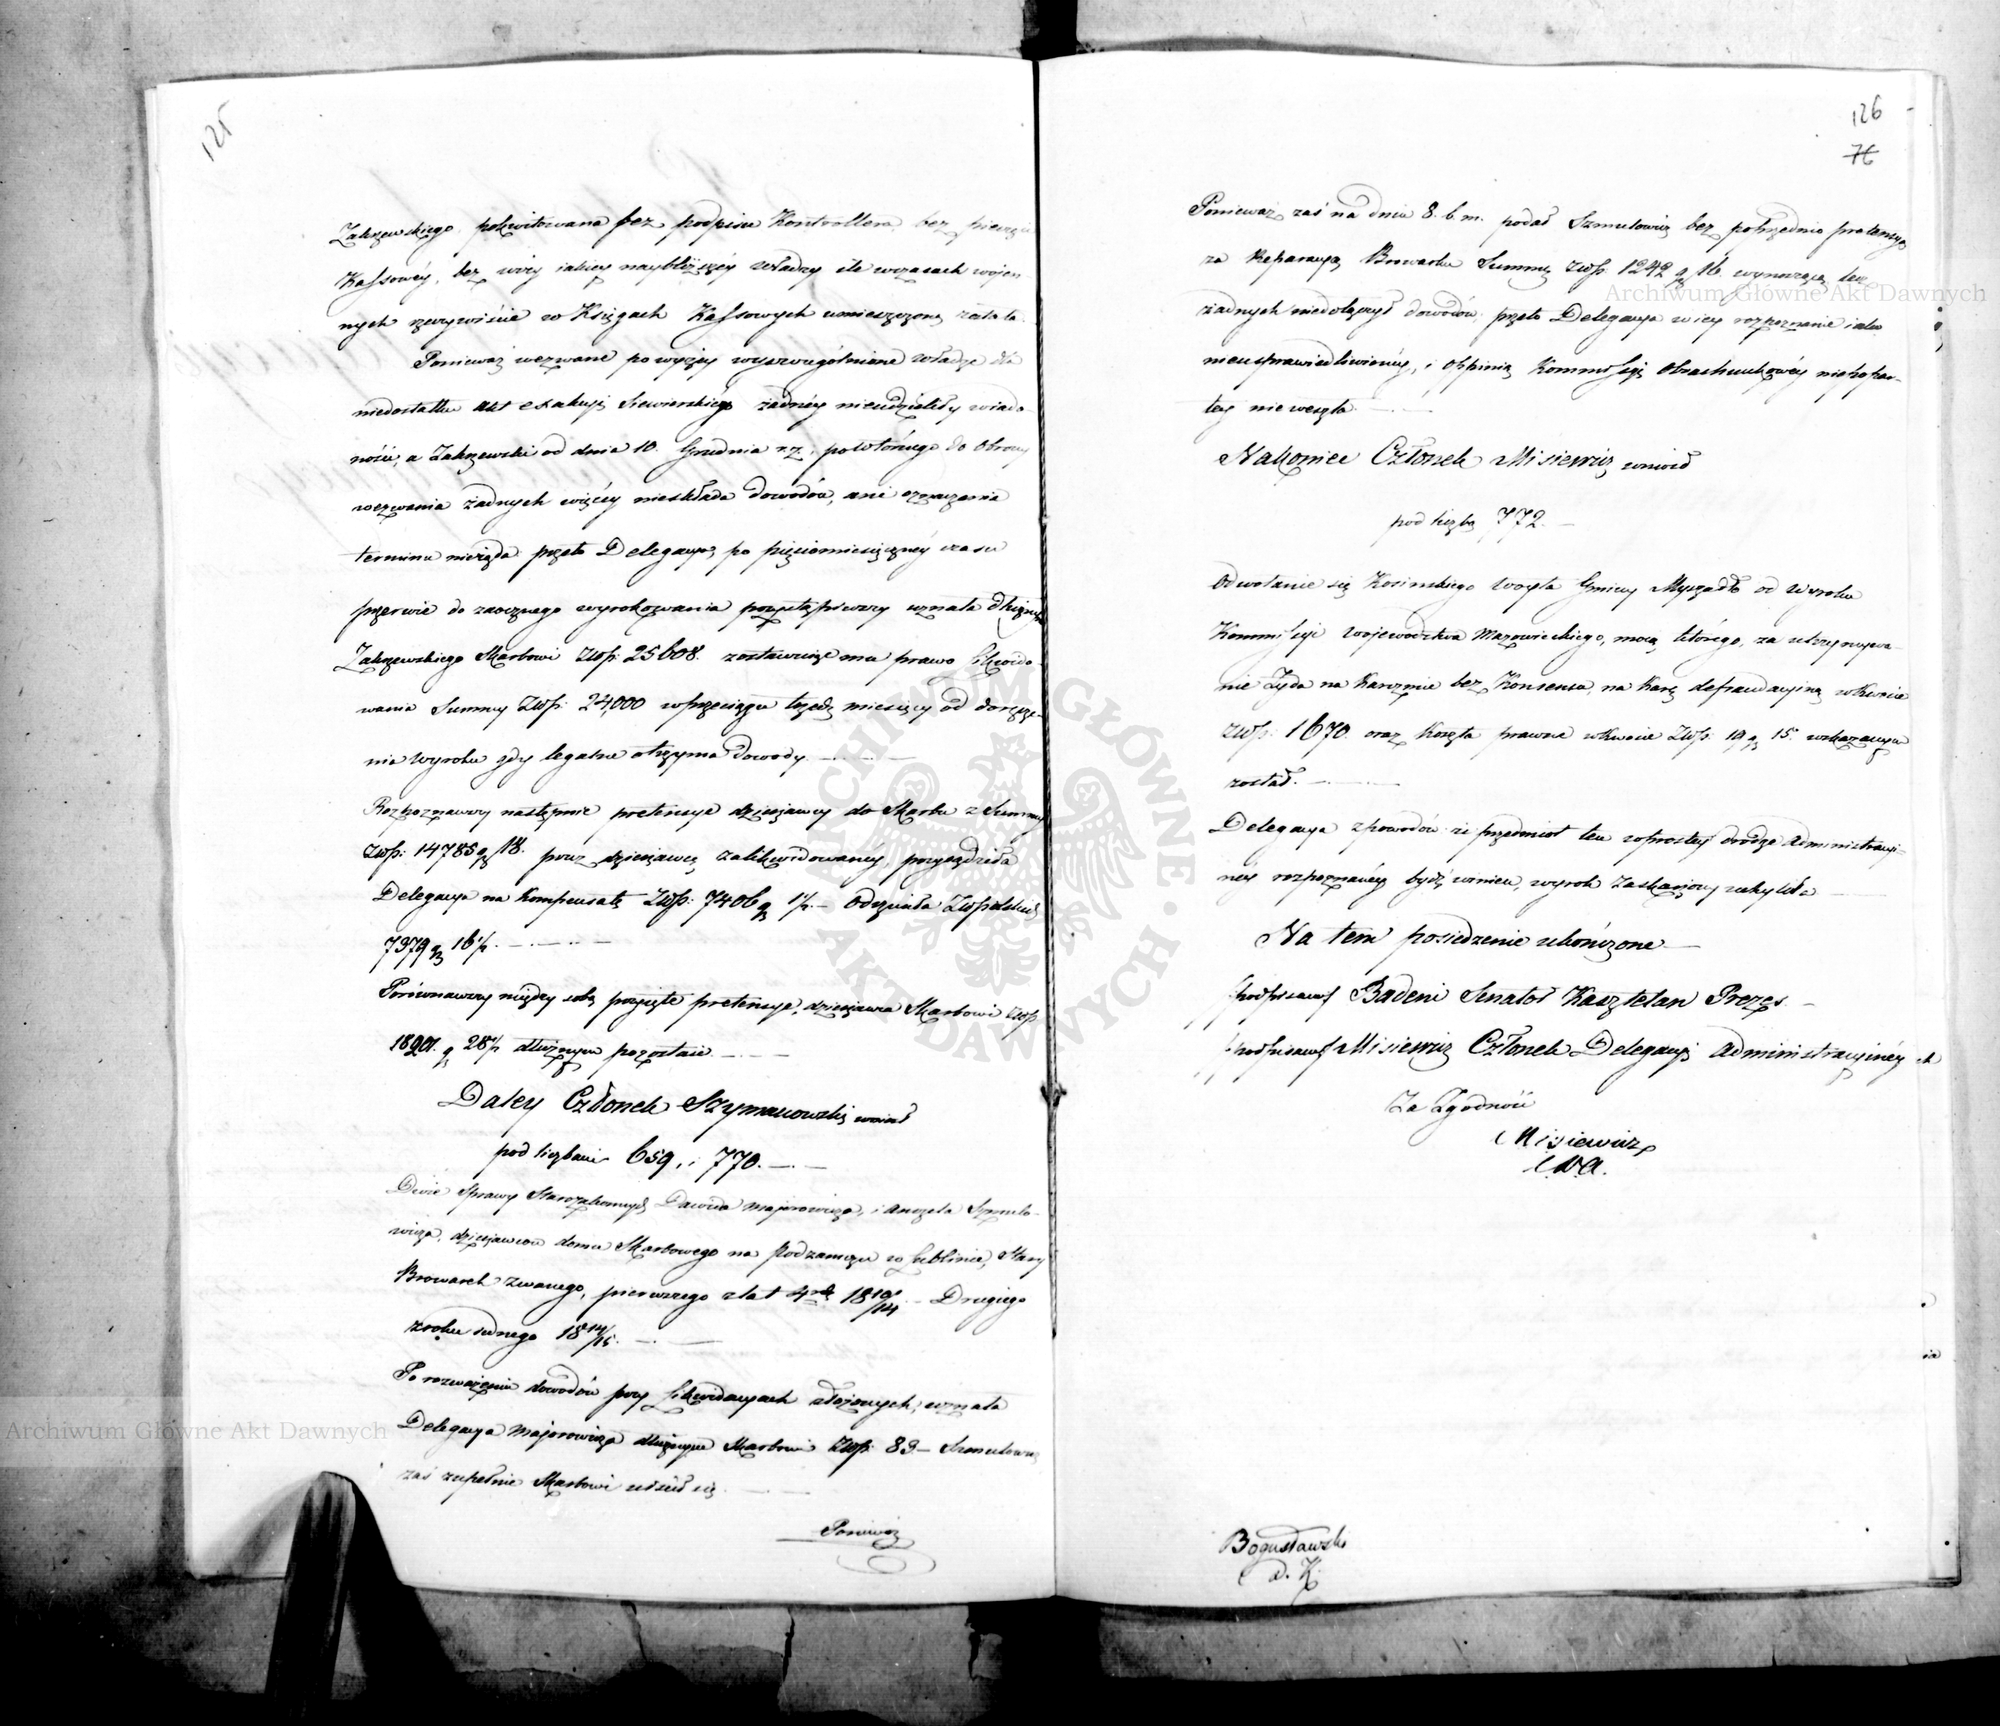 125
Zakrzewskiego, pokwitowana bez podpisu Kontrollera bez pieczęci
Kassowéy, bez wizy iakiey naybliższéy władzy ile wczasach woien-
nych rzeczywiście w Księgach Kassowych umieszczoną została.
Ponieważ wezwane powyżey wyszczególnione władze dla
niedostatku akt exakcyi Siewierskiego żadnéy nieudzieliły wiado-
mości, a Zakrzewski od dnia 10. Grudnia r. z. powtórnego do Obrony
wezwania żadnych więcéy nieskłada dowodów, ani oznaczenia
terminu nieżąda przeto Delegacya po pięciomiesięcznéy czasu
przerwie do zaocznego wyrokowania przystąpiwszy uznała dłużnym
Zakrzewskiego Skarbowi Złp: 25608. zostawuiąc ma prawo Likwido-
wania Summy Złp: 24,000 wprzeciągu trzech miesięcy od doręcze-
nia Wyroku gdy legalne otrzyma dowody.
Rozpoznawszy następnie pretensye dzierżawcy do Skarbu z Summy
Złp: 14785 gr 18. przez dzierżawcę zalikwidowanéy, przysądziła
Delegacya na kompensatę Złp: 7406 gr 1½ – Odsądziła Złpolskich
7379 gr 16½.
Porównawszy między sobą przyięte pretensye, dzierżawca Skarbowi Złp:
18201. gr 28½ dłużnym pozostaie.
Daley Członek Szymanowski wniósł
pod liczbami 659, i 770.
Dwie sprawy Starozakonnych Dawida Majorowicza, i Anczela Szmulo-
wicza, dzierżawców domu Skarbowego na Podzamczu w Lublinie, Stary
Browarek zwanego, pierwszego z lat 4rech 1810/14 – Drugiego
z roku iednego 1814/15.
Po rozważeniu dowodów przy Likwidacyach złożonych, uznała
Delegacya Majorowicza dłużnym Skarbowi Złp: 83 – Szmulowicz
zaś zupełnie Skarbowi uiścił się
Ponieważ
126
76
Ponieważ zaś na dniu 8. b. m. podał Szmulowicz bez pośrednio pretensyę
za Reparacyą Browarku Summę Złp: 1242 gr 16. wynoszącą lecz
żadnych niedołączył dowodów, przeto Delegacya w iey rozpoznanie iako
nieusprawiedliwionéy, i Opinią Kommissyi Obrachunkowéy niepopar-
tey nie weszła.
Nakoniec Członek Misiewicz wniósł
pod liczbą 772.
Odwołanie się Kosinskiego Wóyta Gminy Myszadła od Wyroku
Kommissyi Woiewództwa Mazowieckiego, mocą którego, za utrzymywa-
nie Żyda na karczmie bez Konsensu, na karę defraudacyiną w kwocie
Złp: 1670. oraz koszta prawne w kwocie Złp: 19 gr 15. wskazanym
został.
Delegacya z powodów iż przedmiot ten w prostey drodze Administracyi-
néy rozpoznawany bydź winien, wyrok zaskarżony uchyliła
Na tem posiedzenie ukończone
/podpisano/ Badeni Senator Kasztelan Prezes.
/podpisano/ Misiewicz Członek Delegacyi Administracyinéy
Za Zgodność
Misiewicz
Bogusławski
Archiwum Główne Akt Dawnych
Archiwum Główne Akt Dawnych
ARCHIWUM GŁÓWNE AKT DAWNYCH